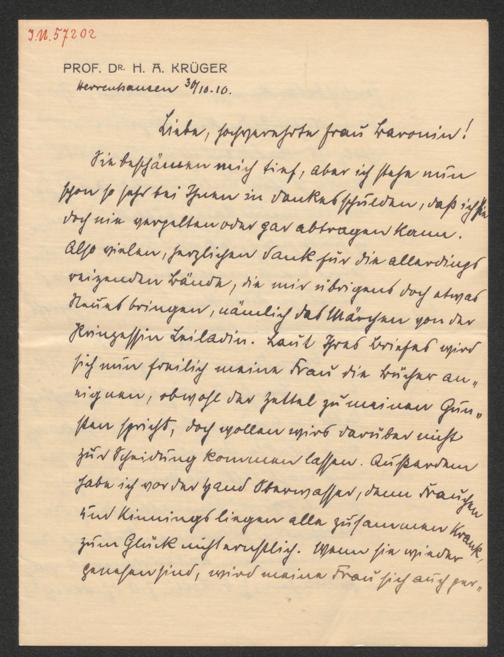 J.N. 57202
PROF. DR. H. A. KRÜGER
Herrenhausen 30/10.10.
Liebe, hochverehrte Frau Baronin!
Sie beschämen mich tief, aber ich stehe nun
schon so sehr bei Ihnen in Dankesschulden, daß ich sie
doch nie vergelten oder gar abtragen kann.
Also vielen, herzlichen Dank für die allerdings
reizenden Bände, die mir übrigens doch etwas
Neues bringen, nämlich das Märchen von der
Prinzessin Leiladin. Laut Ihres Briefes wird
sich nun freilich meine Frau die Bücher an„
eignen, obwohl der Zettel zu meinen Gun„
sten spricht, doch wollen wirs darüber nicht
zur Scheidung kommen lassen. Außerdem
habe ich vor der Hand Oberwasser, denn Frauchen
und Kinnings liegen alle zusammen krank,
zum Glück nicht ernstlich. Wenn sie wieder
genesen sind, wird meine Frau sich auch per„